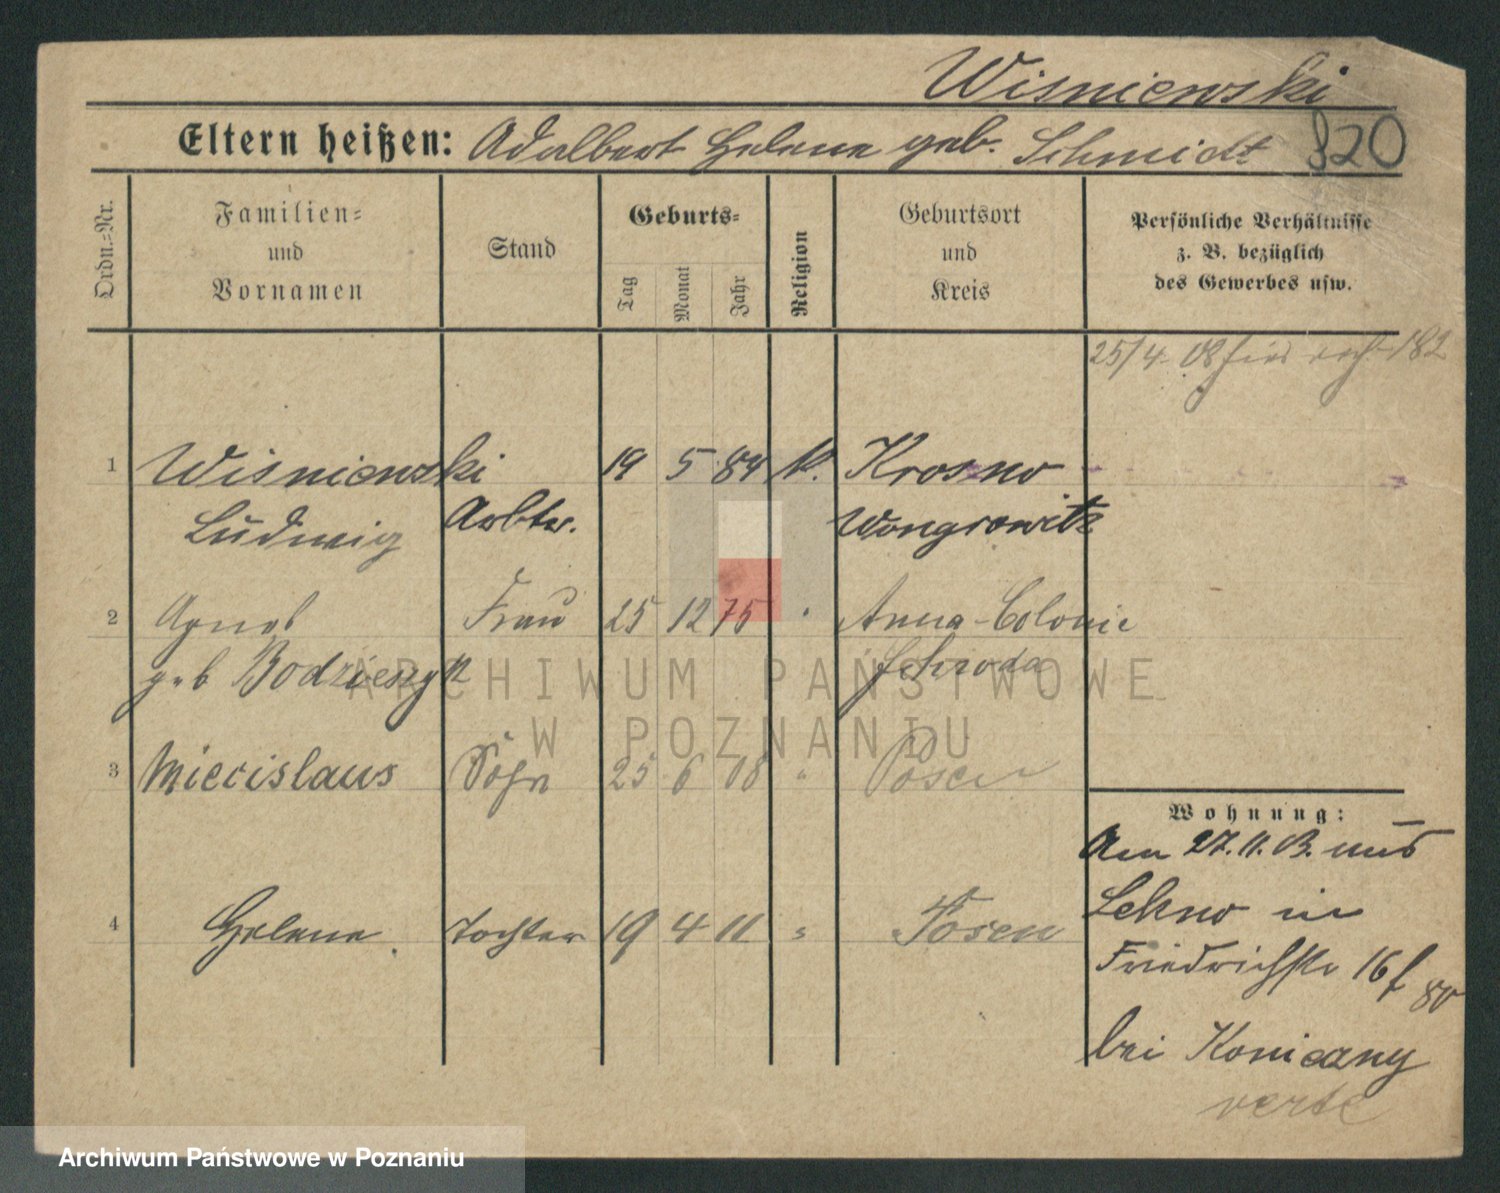 Wisniewski
Eltern heißen: Adalbert Helene geb. Schmidt 820
Ordn.=Nr.
Familien=
und
Vornamen
Stand
Geburts=
Tag
Monat
Jahr
Religion
Geburtsort
und
Kreis
Persönliche Verhältnisse
z. B. bezüglich
des Gewerbes usw.
25/4 08 182
1 Wisniewski 19 5 84 k. Krosno
Ludwig Arbtr. Wongrowitz
2 Agnes Frau 25 12 75 " Anna-Colonie
geb Schroda
3 Miecislaus Sohn 25 6 08 " Posen
Wohnung:
Am 27.11.13. aus
4 Helene. Tochter 19 4 11 " Posen
Lekno in
Friedrichstr 16
bei Koniczny
verte
ARCHIWUM PAŃSTWOWE
W POZNANIU
Archiwum Państwowe w Poznaniu